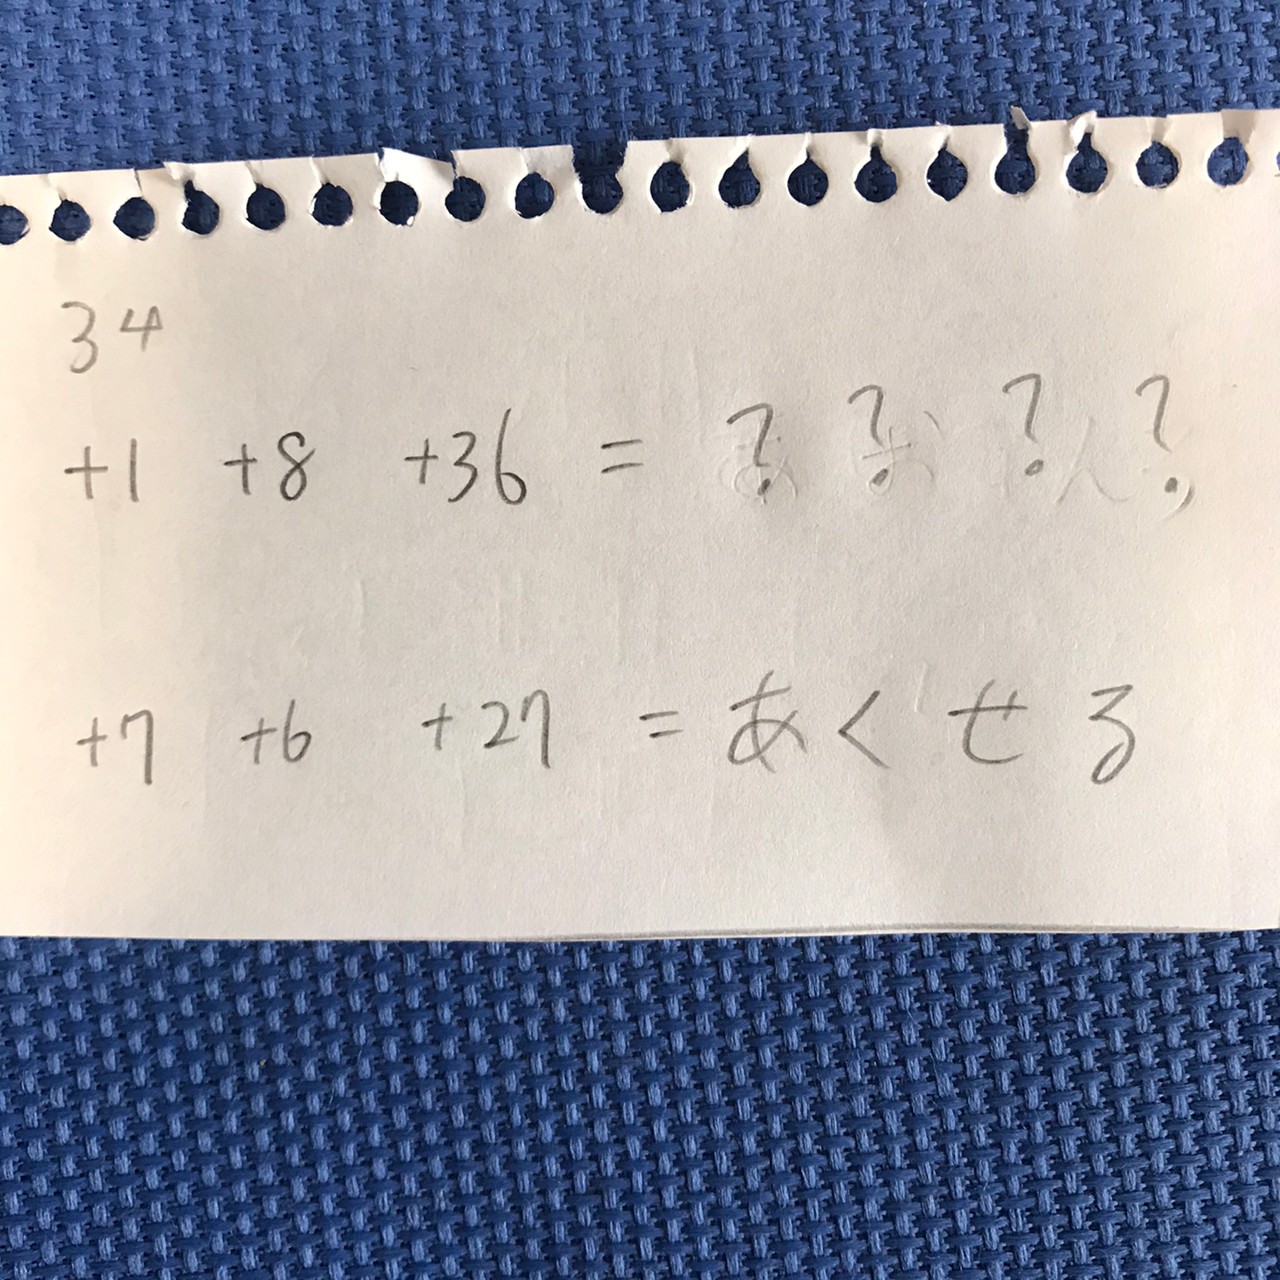 34
+1 +8 +36 = ? ? ? ?
+7 +6 +27 = あくせる